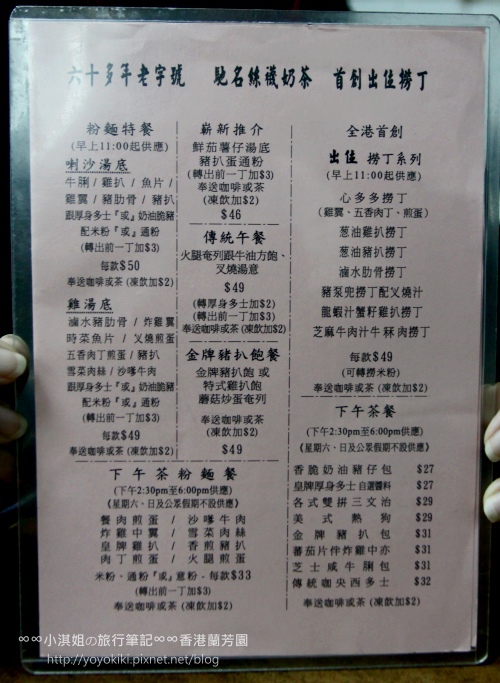 六十多年老字號 馳名絲襪奶茶 首創出位撈丁
粉麵特餐
(早上11:00起供應)
喇沙湯底
牛脷 / 雞扒 / 魚片 /
雞翼 / 豬肋骨 / 豬扒
跟厚身多士『或』奶油脆豬
配米粉『或』通粉
(轉出前一丁加$3)
每款$50
奉送咖啡或茶 (凍飲加$2)
雞湯底
滷水豬肋骨 / 炸雞翼
時菜魚片 / 叉燒煎蛋
五香肉丁煎蛋 / 豬扒
雪菜肉絲 / 沙嗲牛肉
跟厚身多士『或』奶油脆豬
配米粉『或』通粉
(轉出前一丁加$3)
每款$49
奉送咖啡或茶 (凍飲加$2)
嶄新推介
鮮茄薯仔湯底
豬扒蛋通粉
(轉出前一丁加$3)
奉送咖啡或茶
(凍飲加$2)
$46
傳統午餐
火腿奄列跟牛油方飽、
叉燒湯意
$49
(轉厚身多士加$2)
(轉出前一丁加$3)
奉送咖啡或茶
(凍飲加$2)
金牌豬扒飽餐
金牌豬扒飽 或
特式雞扒飽
蘑菇炒蛋奄列
奉送咖啡或茶
(凍飲加$2)
$49
全港首創
出位 撈丁系列
(早上11:00起供應)
心多多撈丁
(雞翼、五香肉丁、煎蛋)
葱油雞扒撈丁
葱油豬扒撈丁
滷水肋骨撈丁
豬泵兜撈丁配叉燒汁
龍蝦汁蟹籽雞扒撈丁
芝麻牛肉汁牛冧肉撈丁
每款$49
(可轉撈米粉)
奉送咖啡或茶 (凍飲加$2)
下午茶餐
(下午2:30pm至6:00pm供應)
《星期六、日及公眾假期不設供應》
香脆奶油豬仔包 $27
皇牌厚身多士 自選醬料 $27
各式雙拼三文治 $29
美式熱狗 $29
金牌豬扒包 $31
蕃茄片伴炸雞中亦 $31
芝士咸牛脷包 $31
傳統咖央西多士 $32
奉送咖啡或茶 (凍飲加$2)
下午茶粉麵餐
(下午2:30pm至6:00pm供應)
《星期六、日及公眾假期不設供應》
餐肉煎蛋 / 沙嗲牛肉
炸雞中翼 / 雪菜肉絲
皇牌雞扒 / 香煎豬扒
肉丁煎蛋 / 火腿煎蛋
米粉、通粉『或』意粉 - 每款$33
(轉出前一丁加$3)
奉送咖啡或茶 (凍飲加$2)
∞∞小淇姐の旅行筆記∞∞香港蘭芳園
http://yoyokiki.pixnet.net/blog